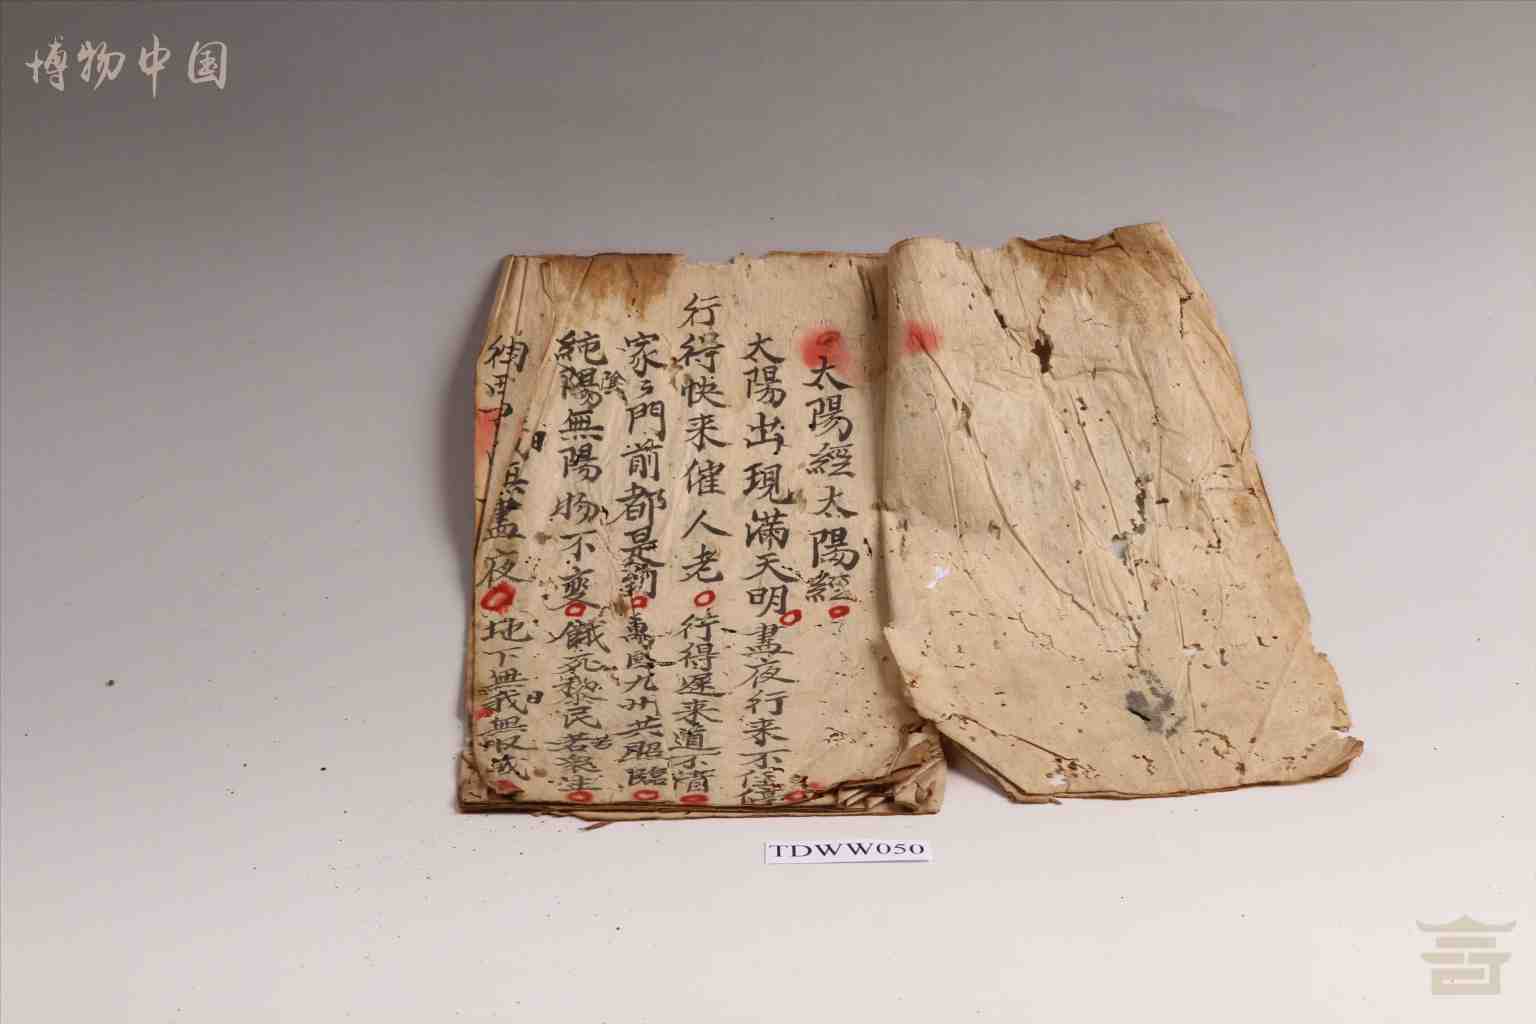 博物中国
太陽經太陽經
太陽出現滿天明晝夜行来不住停
行得快来催人老行得遲来道不清
家々門前都是
萬國九州共照臨
純陽無陽物不變餓死黎民若衆生
陰
晝夜地下無我無收成
日
日
TDWW050